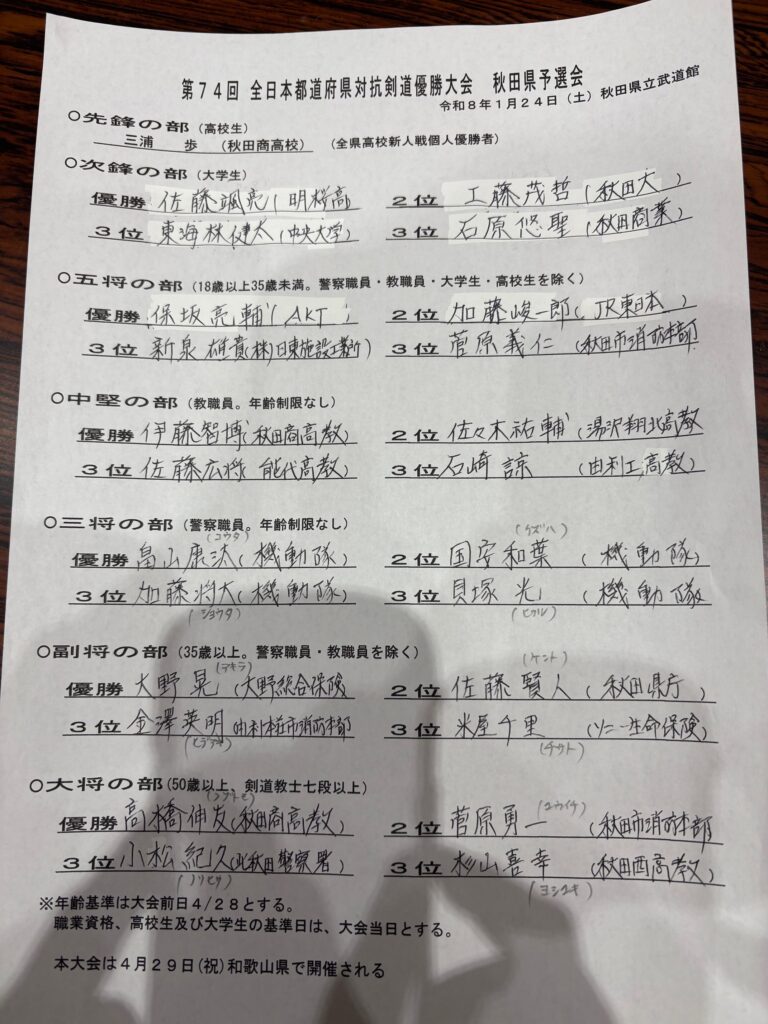 第74回 全日本都道府県対抗剣道優勝大会 秋田県予選会
令和8年1月24日(土) 秋田県立武道館
○先鋒の部(高校生)
三浦 歩 (秋田商高校) (全県高校新人戦個人優勝者)
○次鋒の部(大学生)
優勝 佐藤颯亮(明桜高) 2位 工藤茂哲(秋田大)
3位 東海林健太(中央大学) 3位 石原悠聖(秋田商業)
○五将の部(18歳以上35歳未満。警察職員・教職員・大学生・高校生を除く)
優勝 保坂亮輔(AKT) 2位 加藤峻一郎(JR東日本)
3位 新泉雄貴(株)日東施設工業所) 3位 菅原義仁(秋田市消防本部)
○中堅の部(教職員。年齢制限なし)
優勝 伊藤智博(秋田商高教) 2位 佐々木祐輔(湯沢翔北高教
3位 佐藤広将 能代高教) 3位 石崎諒 (由利工高教)
○三将の部(警察職員。年齢制限なし)
(コウタ) (カズハ)
優勝 畠山康汰(機動隊) 2位 国安和葉 (機動隊)
3位 加藤将太(機動隊) 3位 貝塚光 (機動隊
(ショウタ) (ヒカル)
○副将の部(35歳以上。警察職員・教職員を除く)
(アキラ) (ケント)
優勝 大野晃(大野総合保険 2位 佐藤賢人(秋田県庁)
3位 金澤英明(由利本荘市消防本部 3位 米屋千里 (ソニー生命保険)
(ヒデアキ)
○大将の部(50歳以上、剣道教士七段以上)
(ノブトモ) (ユウイチ)
優勝 高橋伸友(秋田商高教) 2位 菅原勇一 (秋田市消防本部
3位 小松紀久(北秋田警察署) 3位 杉山喜幸 (秋田西高教)
(ノリヒサ) (ヨシユキ)
※年齢基準は大会前日4/28とする。
職業資格、高校生及び大学生の基準日は、大会当日とする。
本大会は4月29日(祝)和歌山県で開催される